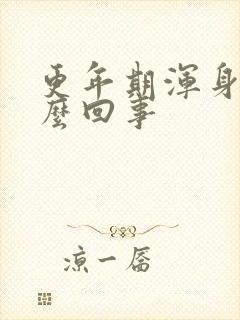 更年期渾身
麼回事
涼一馬